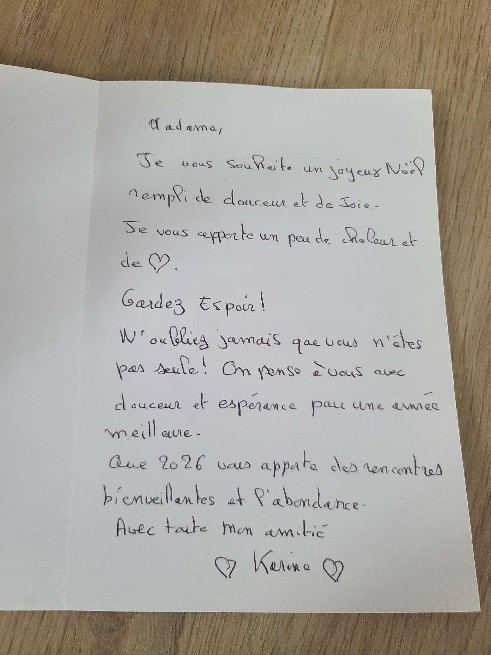 Madame,
Je vous souhaite un joyeux Noël
rempli de douceur et de Joie.
Je vous apporte un peu de chaleur et
de ♡.
Gardez Espoir!
N'oubliez jamais que vous n'êtes
pas seule! On pense à vous avec
douceur et espérance pour une année
meilleure.
Que 2026 vous apporte des rencontres
bienveillantes et l'abondance.
Avec toute mon amitié
♡ Karine ♡